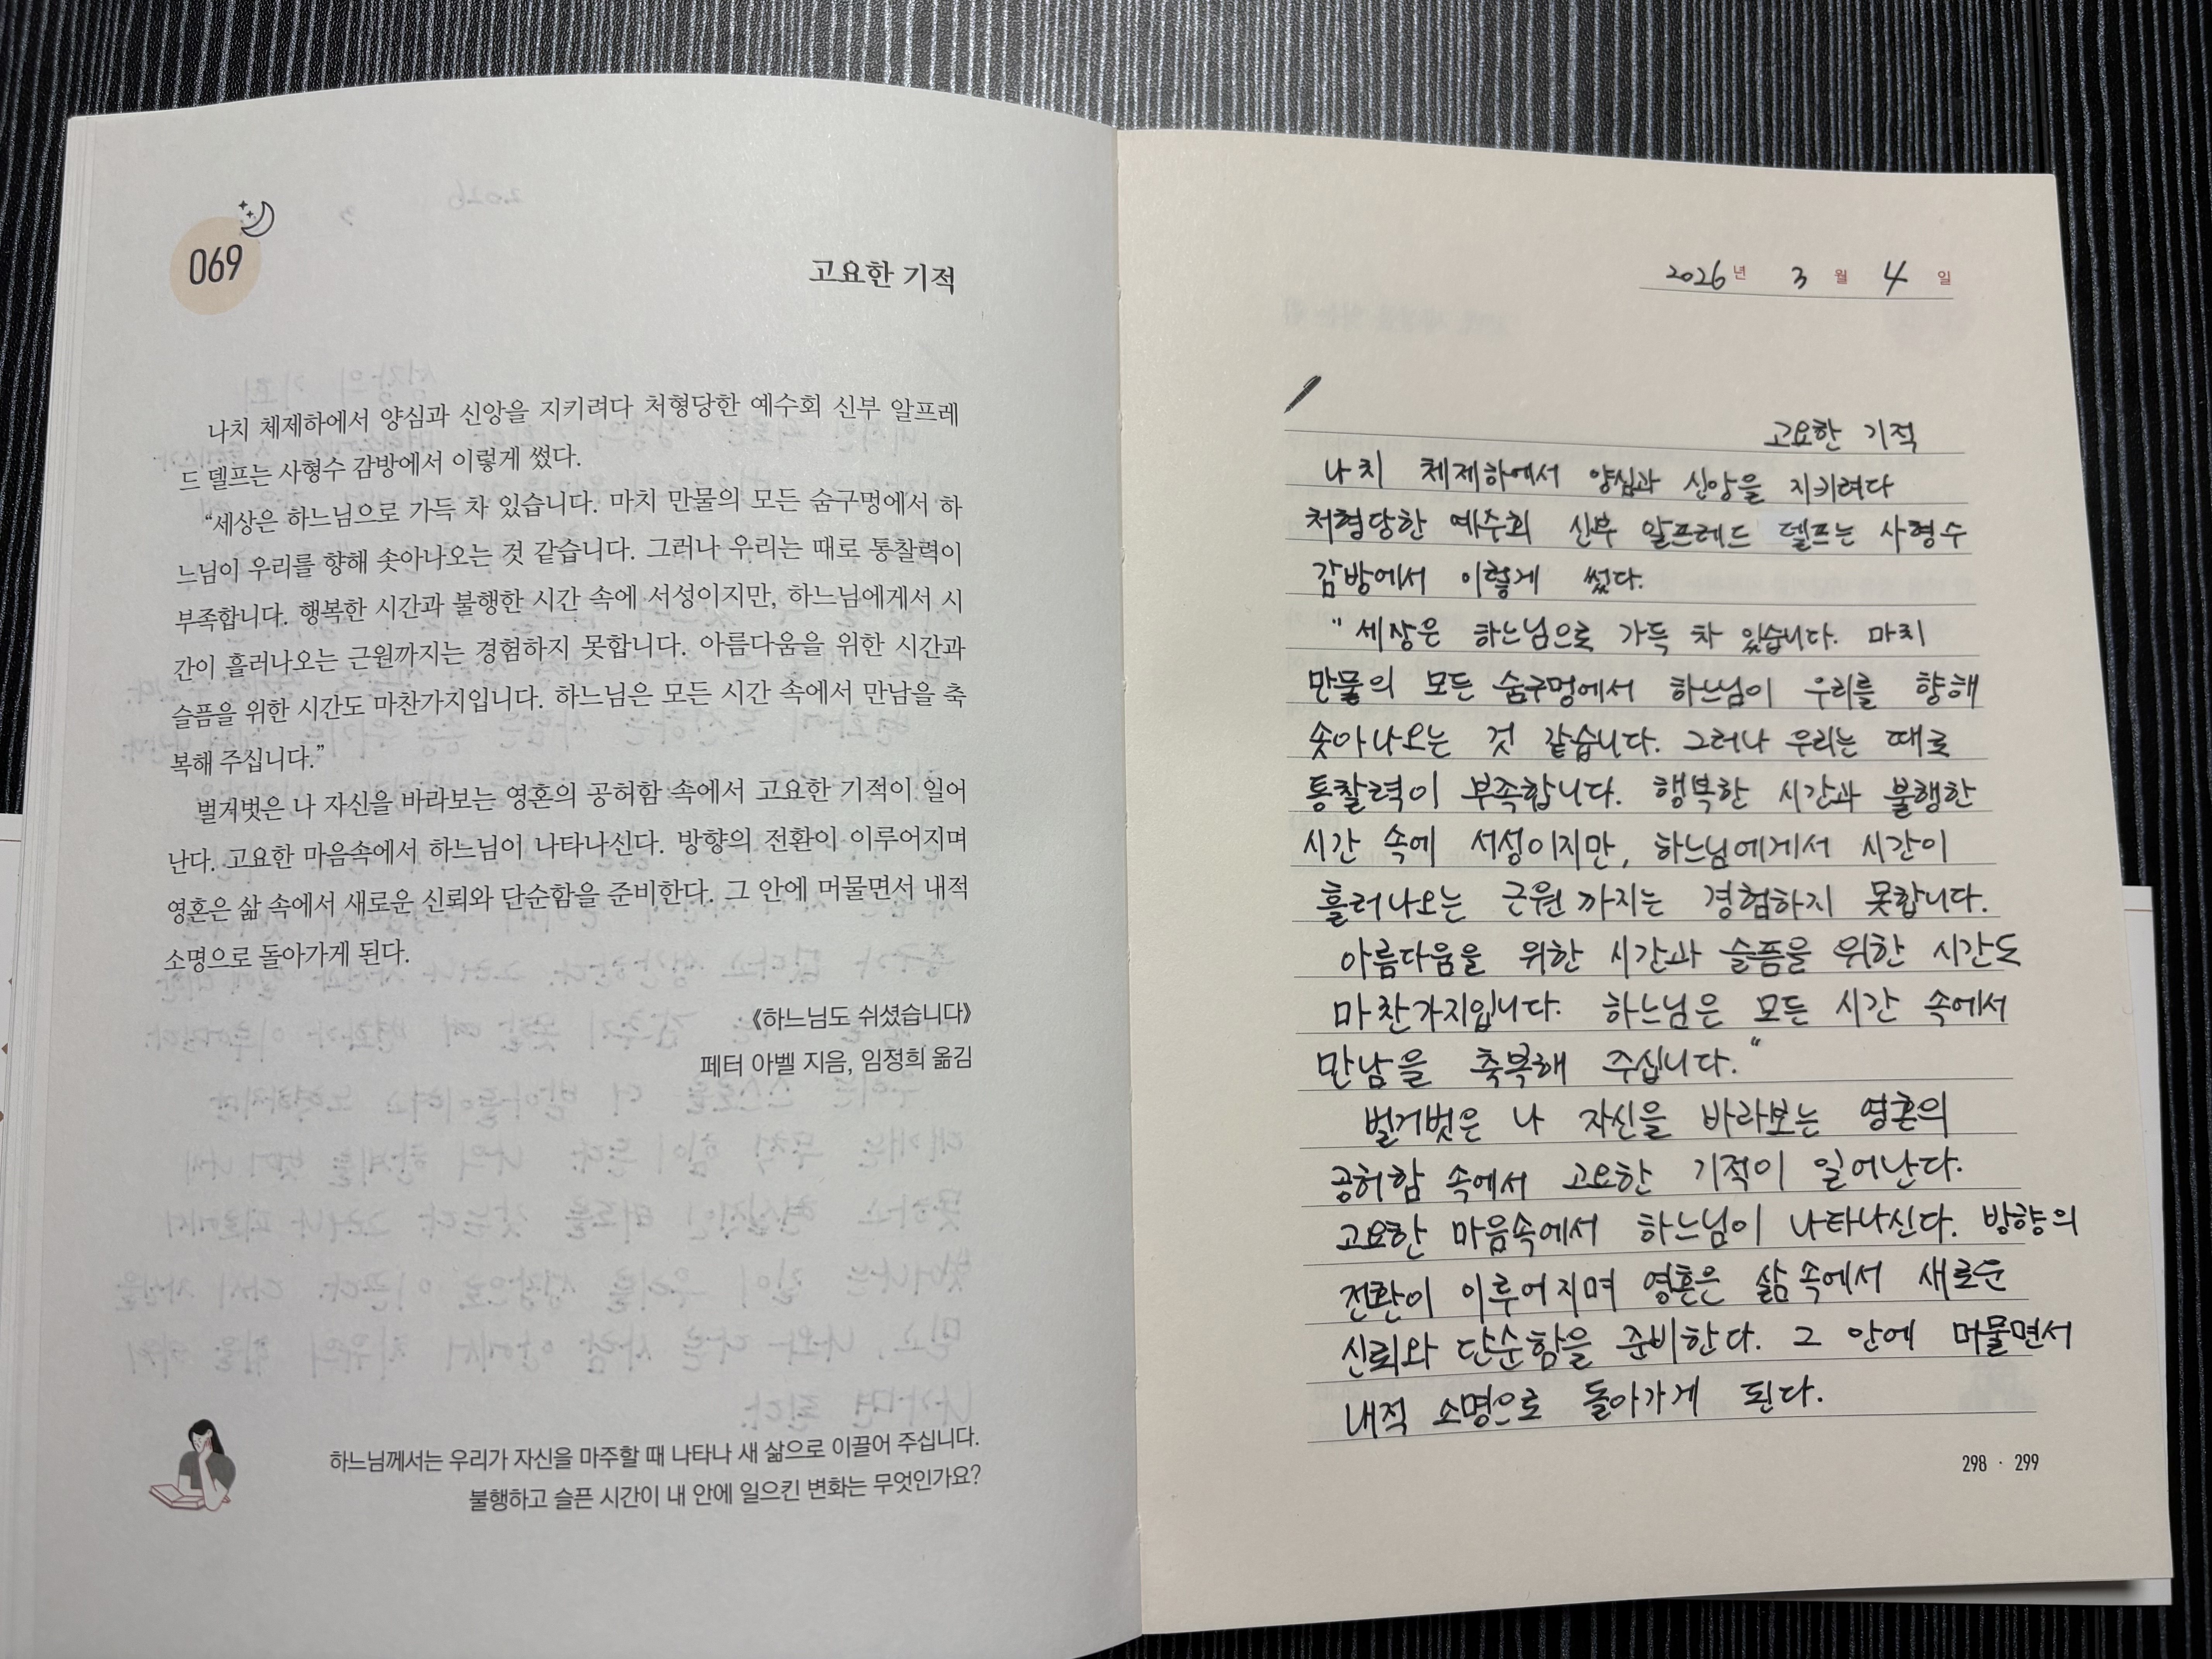 069
고요한 기적
나치 체제하에서 양심과 신앙을 지키려다 처형당한 예수회 신부 알프레
드 델프는 사형수 감방에서 이렇게 썼다.
“세상은 하느님으로 가득 차 있습니다. 마치 만물의 모든 숨구멍에서 하
느님이 우리를 향해 솟아나오는 것 같습니다. 그러나 우리는 때로 통찰력이
부족합니다. 행복한 시간과 불행한 시간 속에 서성이지만, 하느님에게서 시
간이 흘러나오는 근원까지는 경험하지 못합니다. 아름다움을 위한 시간과
슬픔을 위한 시간도 마찬가지입니다. 하느님은 모든 시간 속에서 만남을 축
복해 주십니다.”
벌거벗은 나 자신을 바라보는 영혼의 공허함 속에서 고요한 기적이 일어
난다. 고요한 마음속에서 하느님이 나타나신다. 방향의 전환이 이루어지며
영혼은 삶 속에서 새로운 신뢰와 단순함을 준비한다. 그 안에 머물면서 내적
소명으로 돌아가게 된다.
《하느님도 쉬셨습니다》
페터 아벨 지음, 임정희 옮김
하느님께서는 우리가 자신을 마주할 때 나타나 새 삶으로 이끌어 주십니다.
불행하고 슬픈 시간이 내 안에 일으킨 변화는 무엇인가요?
2026년 3월 4일
고요한 기적
나치 체제하에서 양심과 신앙을 지키려다
처형당한 예수회 신부 알프레드 델프는 사형수
감방에서 이렇게 썼다.
“세상은 하느님으로 가득 차 있습니다. 마치
만물의 모든 숨구멍에서 하느님이 우리를 향해
솟아나오는 것 같습니다. 그러나 우리는 때로
통찰력이 부족합니다. 행복한 시간과 불행한
시간 속에 서성이지만, 하느님에게서 시간이
흘러나오는 근원까지는 경험하지 못합니다.
아름다움을 위한 시간과 슬픔을 위한 시간도
마찬가지입니다. 하느님은 모든 시간 속에서
만남을 축복해 주십니다.“
벌거벗은 나 자신을 바라보는 영혼의
공허함 속에서 고요한 기적이 일어난다.
고요한 마음속에서 하느님이 나타나신다. 방향의
전환이 이루어지며 영혼은 삶 속에서 새로운
신뢰와 단순함을 준비한다. 그 안에 머물면서
내적 소명으로 돌아가게 된다.
298 · 299